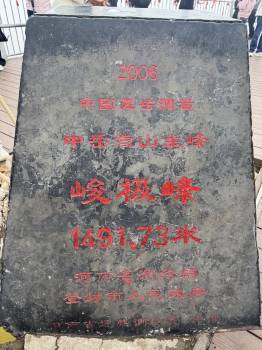 2006
中国五岳测量
中岳嵩山主峰
峻极峰
1491.73米
河南省测绘局
登封市人民政府